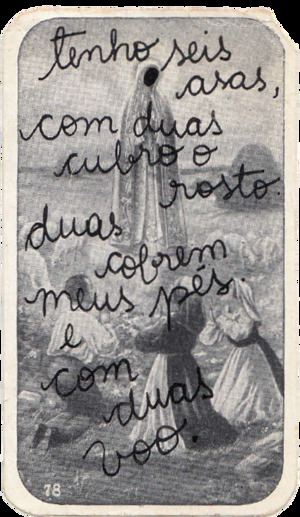 tenho seis
asas,
com duas
cubro o
rosto.
duas
cobrem
meus pés.
e
com
duas
voo.
78